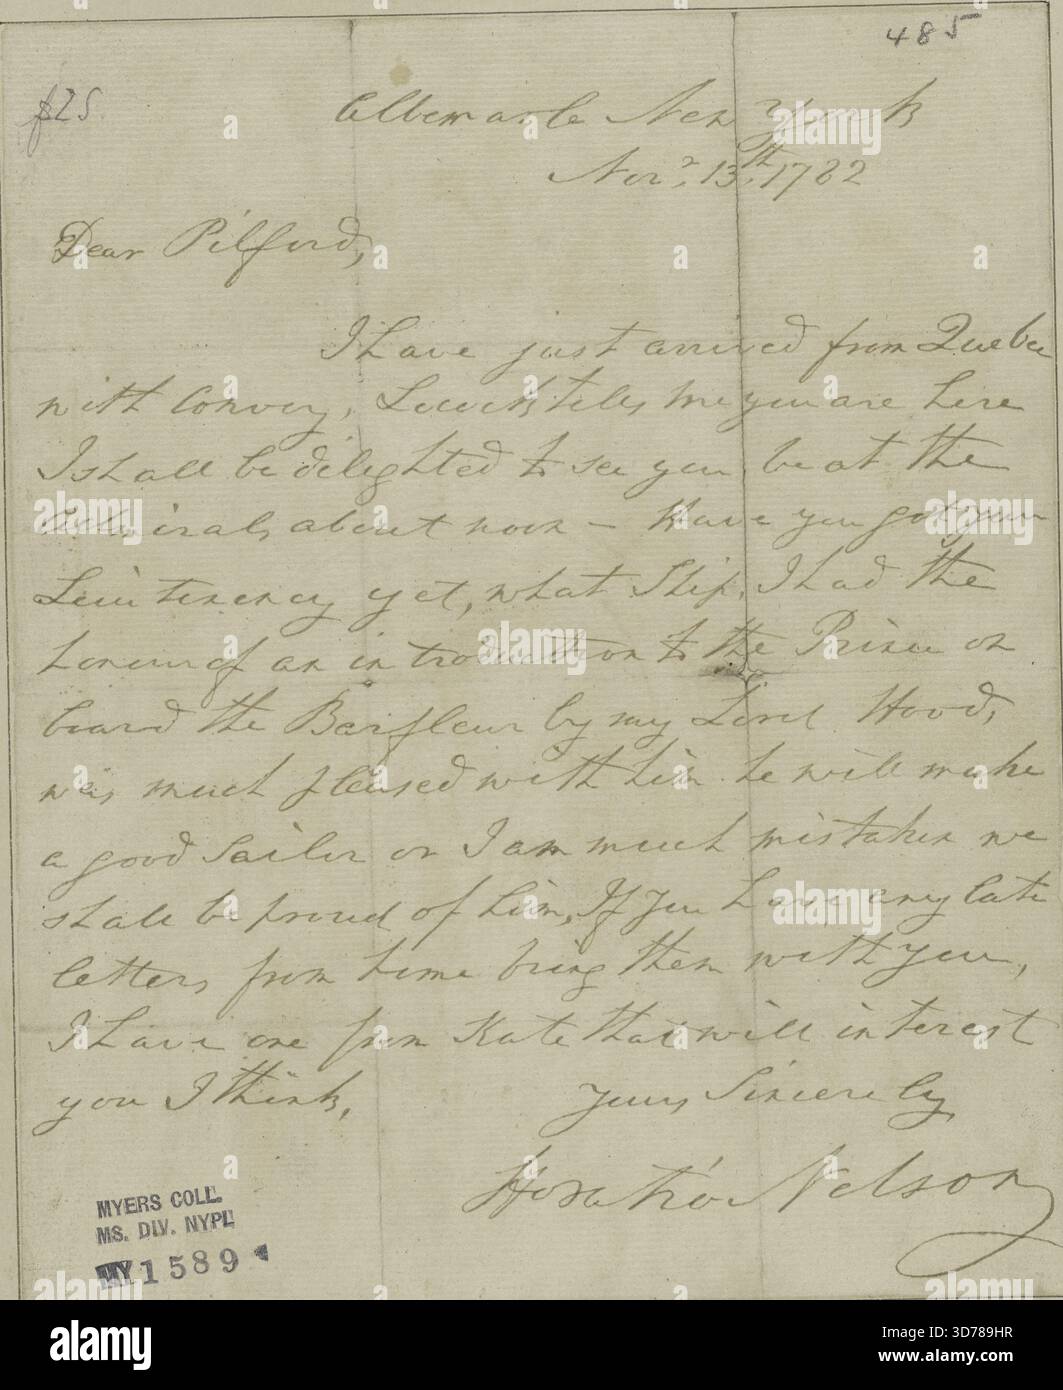 485
£25.
Albemarle New York
Novr. 13th. 1782
Dear Pilford,
I have just arrived from Quebec
with Convoy, tells me you are here
I shall be delighted to see you, be at the
Admirals, about noon – Have you got your
Leiutenency yet, what Ship, I had the
honour of an introduction to the Prince on
board the Barfleur by my Lord Hood,
was much pleased with him he will make
a good Sailor or I am much mistaken we
shall be proud of him, If you have any late
letters from home bring them with you,
I have one from Kate that will interest
you I think,
Yours Sincerely
Horatio Nelson
MYERS COLL.
MS. DIV. NYPL
MY 1589
a alamy
alamy
Image ID: 3D789HR
www.alamy.com